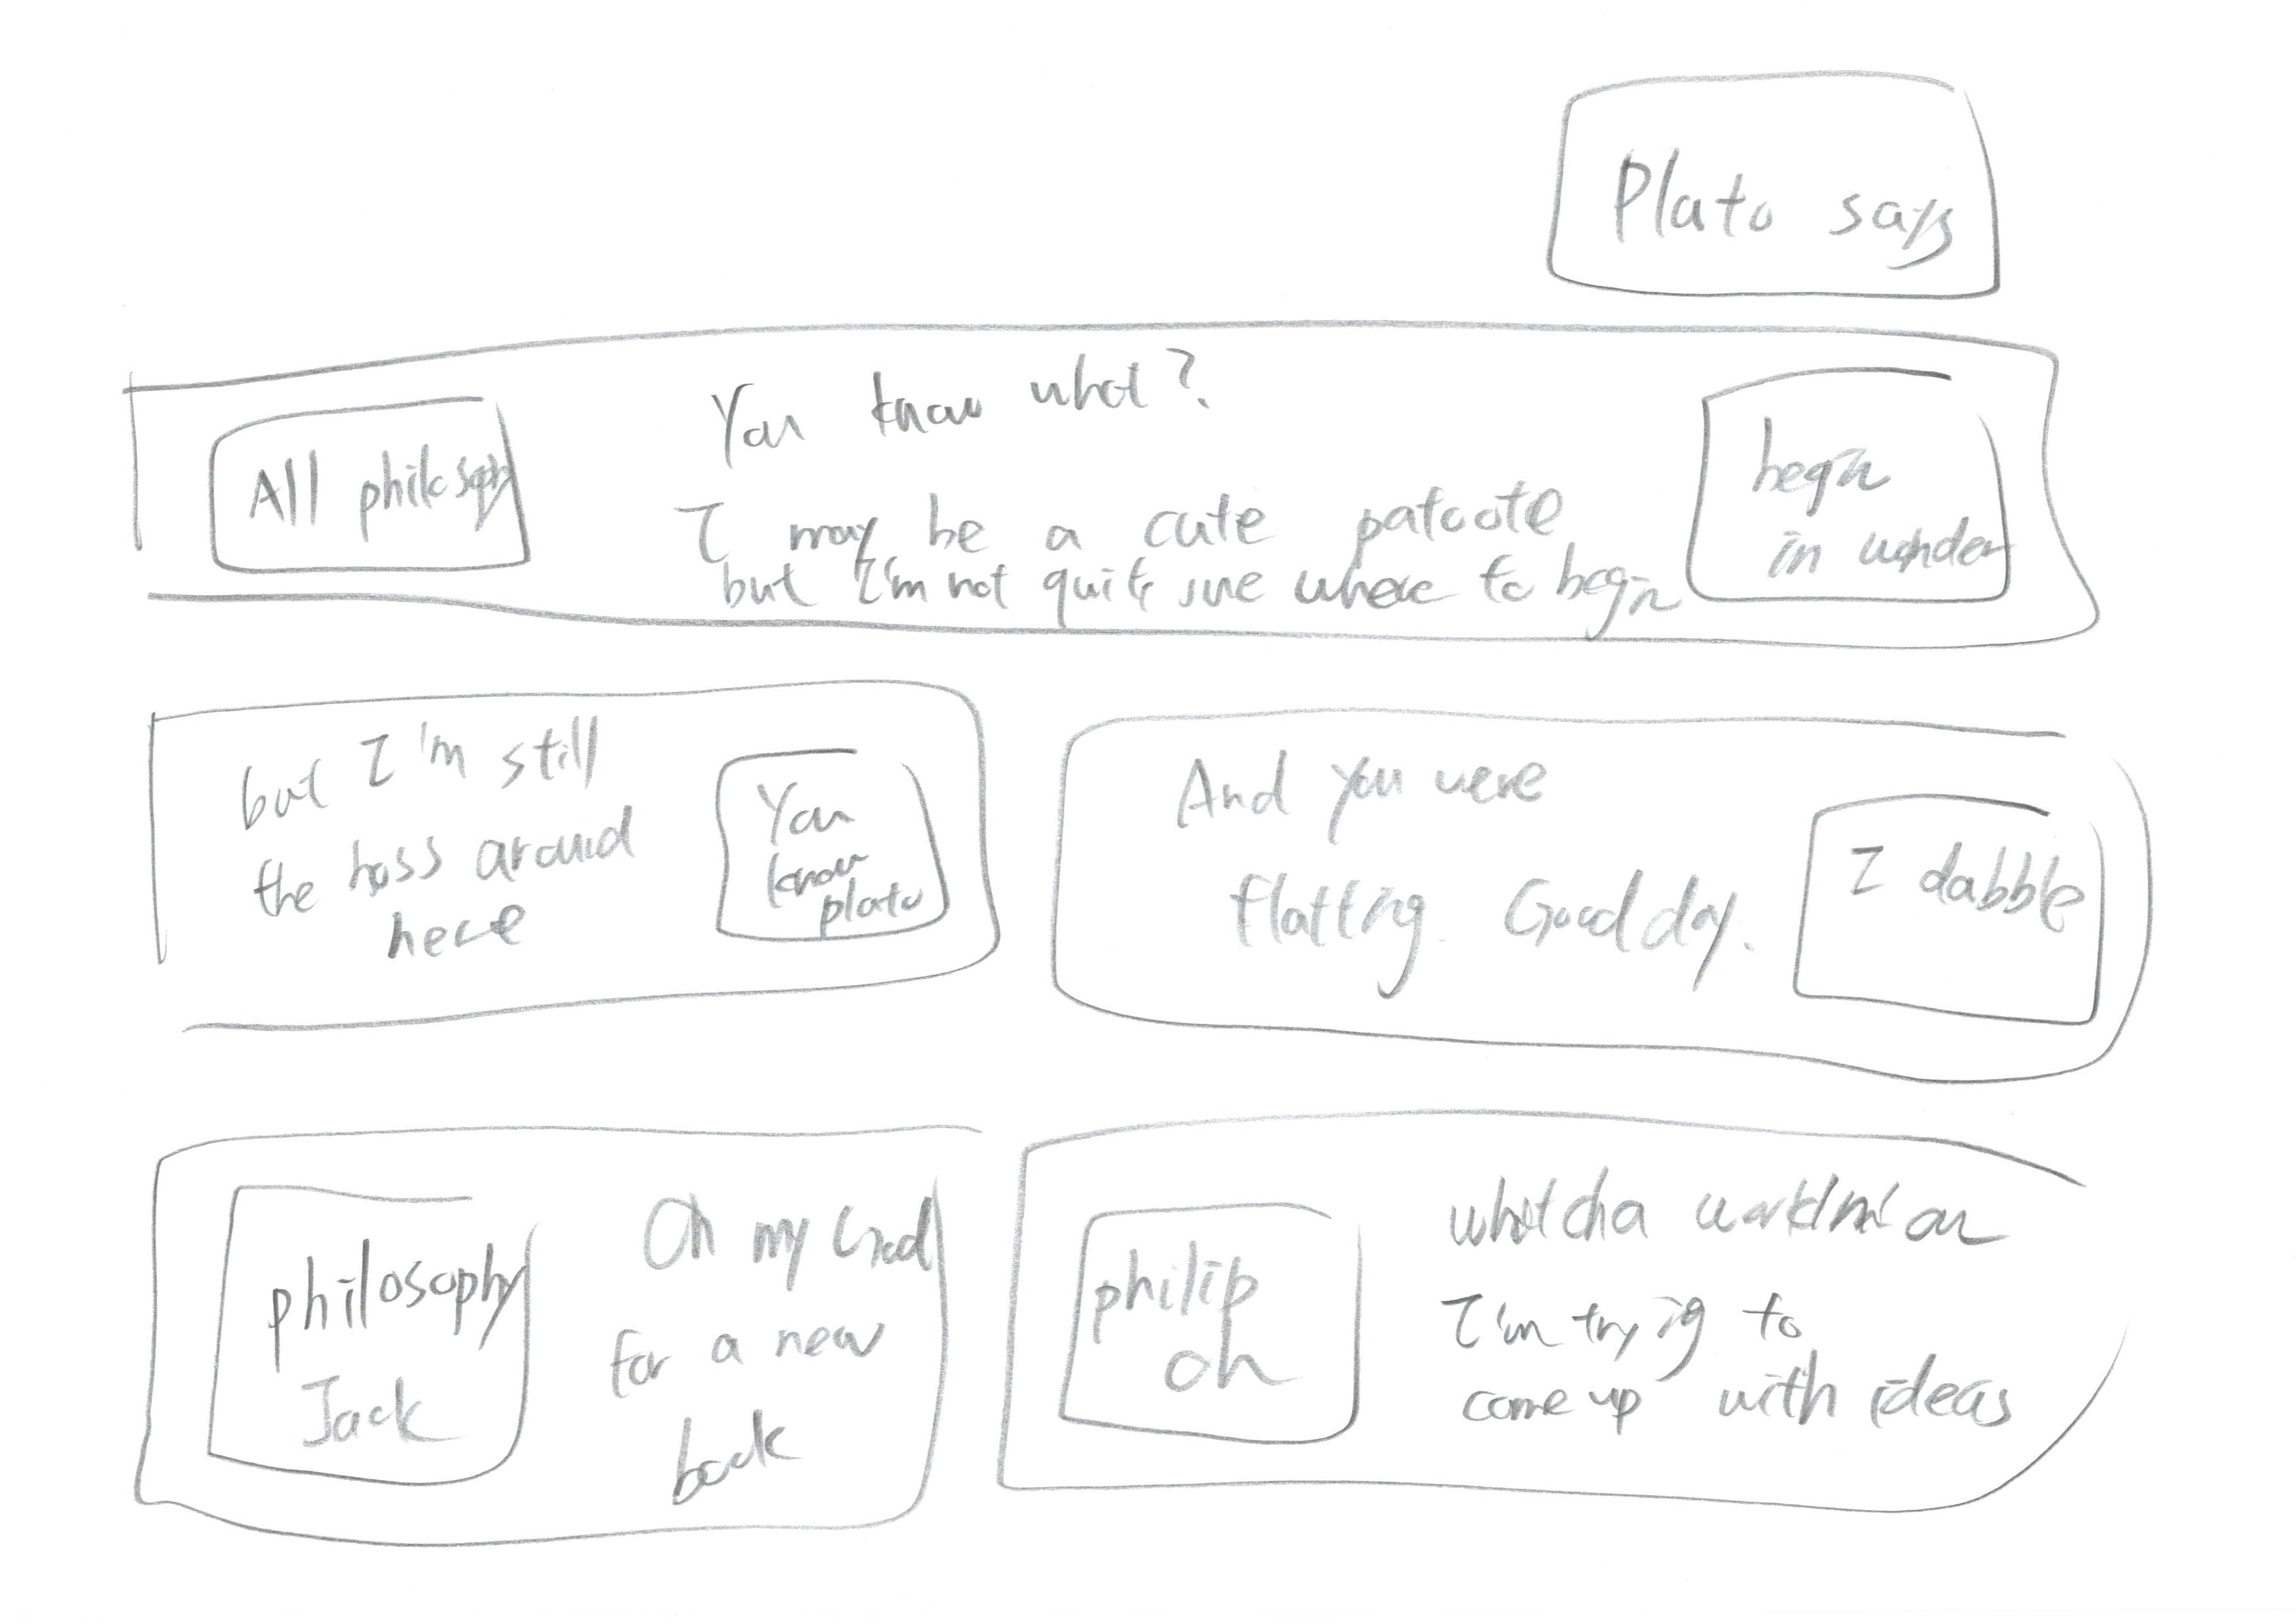 Plato says
All philosophy
You know what?
I may be a cute
but I'm not quite sure where to begin
begin
in wonder
but I'm still
the boss around
here
You
know
plato
And you were
flatting. Good day.
I dabble
philosophy
Jack
Oh my God
for a new
book
philip
oh
whatcha workin' on
I'm trying to
come up with ideas